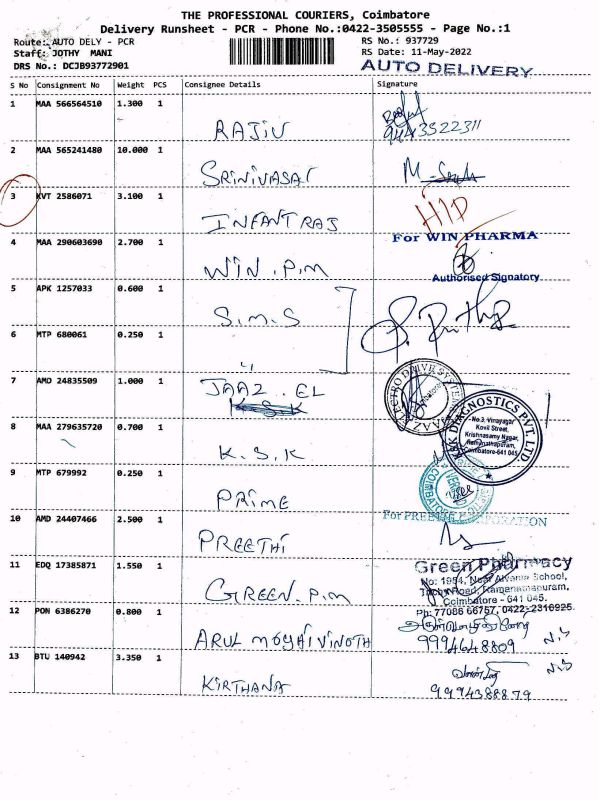 THE PROFESSIONAL COURIERS, Coimbatore
Delivery Runsheet - PCR - Phone No.:0422-3505555 - Page No.:1
Route: AUTO DELY - PCR RS No.: 937729
Staff: JOTHY MANI RS Date: 11-May-2022
DRS No.: DCJB93772901 AUTO DELIVERY
S No Consignment No Weight PCS Consignee Details Signature
1 MAA 566564510 1.300 1
RAJIV 9443522311
2 MAA 565241480 10.000 1
SRINIVASAI
3 KVT 2586071 3.100 1
INFANT RAJ
4 MAA 290603690 2.700 1 For WIN PHARMA
WIN . P.M
Authorised Signatory
5 APK 1257033 0.600 1
S.M.S
6 MTP 680061 0.250 1
"
7 AMD 24835509 1.000 1
JAAZ . EL
8 MAA 279635720 0.700 1
K.S.K
K DIAGNOSTICS PVT. LTD
No.3, Vinayagar
Kovil Street,
Krishnasamy Nagar,
Ramanathapuram,
Coimbatore-641 045.
9 MTP 679992 0.250 1
PRIME
10 AMD 24407466 2.500 1
PREETHI
11 EDQ 17385871 1.550 1
GREEN . P.M
Green Pharmacy
Coimbatore - 641 045.
Ph: 77086 66757, 0422-2316925
12 PON 6386270 0.800 1
ARUL MOZHI VINOTH 9994648809
13 BTU 140942 3.350 1
KIRTHANA 9994388879